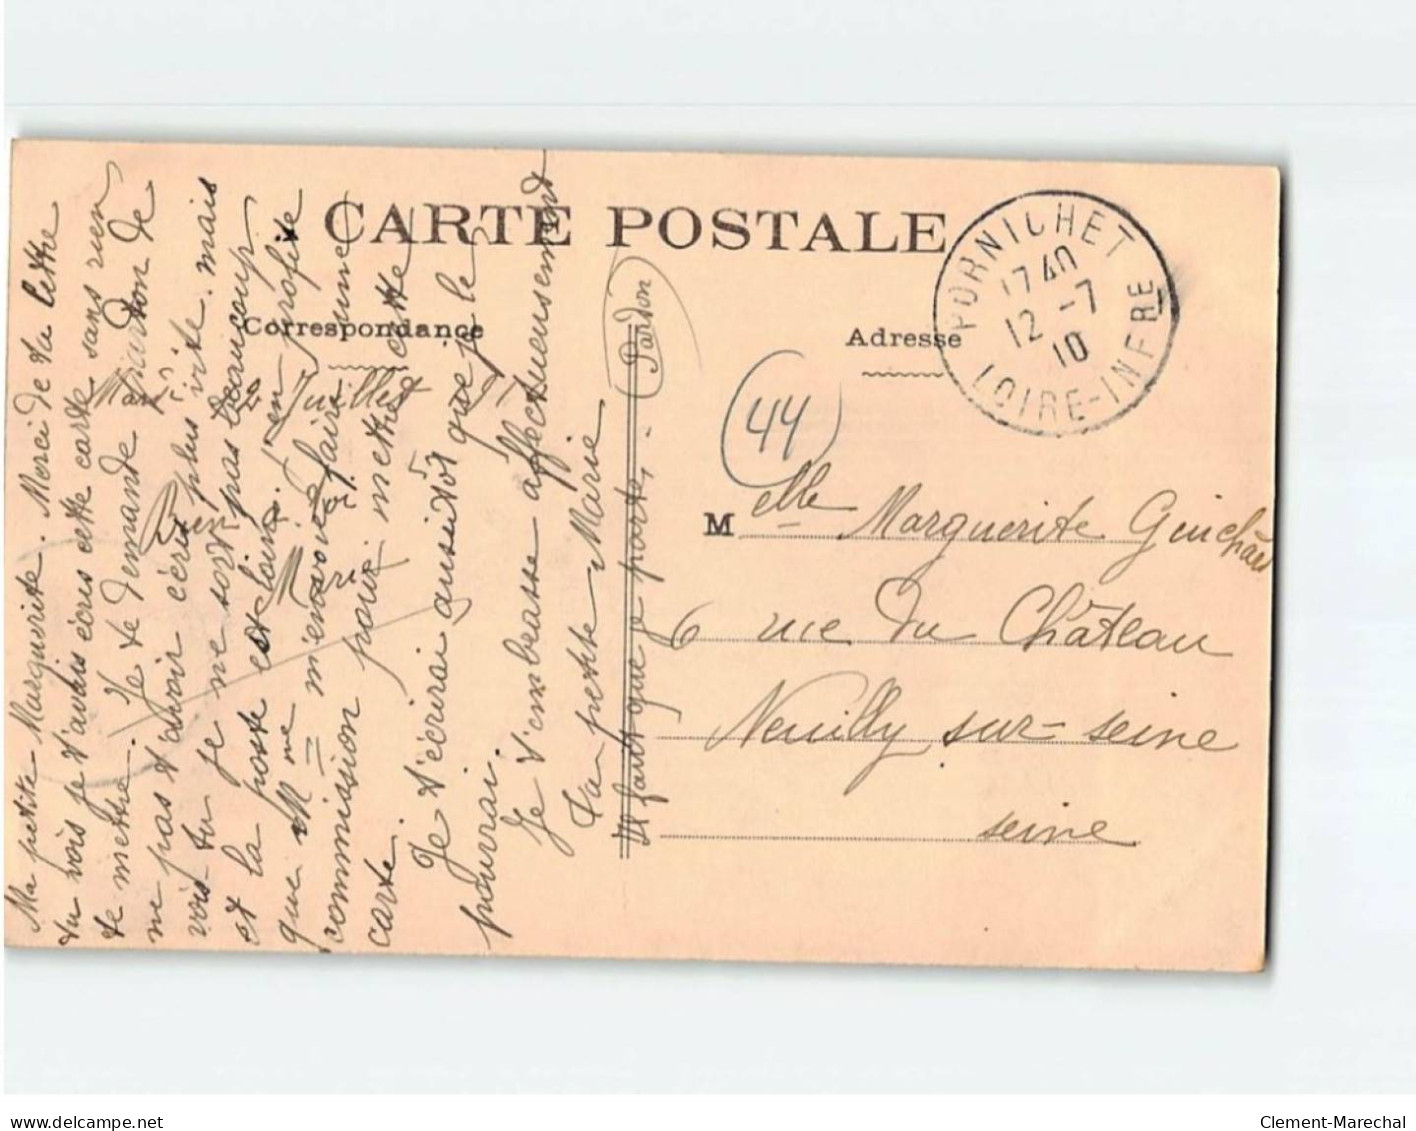 CARTE POSTALE
Correspondance
Adresse
PORNICHET
17 40
12 -7
10
LOIRE-INFRE
44
Melle Marguerite Guichard
6 rue du Château
Neuilly sur-seine
seine
Ma petite Marguerite. Merci de ta lettre
tu vois je t'avais écris cette carte sans rien
te mettre. Je te demande pardon de
ne pas t'avoir écris plus vite. mais
vois tu je ne sort pas beaucoup
et la poste est loin. j'en profite
que Mme m'envoie faire une
commission pour mettre cette
carte.
Je t'écrirai aussitôt que je le
pourrai.
Je t'embrasse affectueusement
Ta petite Marie
Il faut que je parte, - Pardon
Mardi 12 Juillet
Bien
Marie
Clement-Marechal